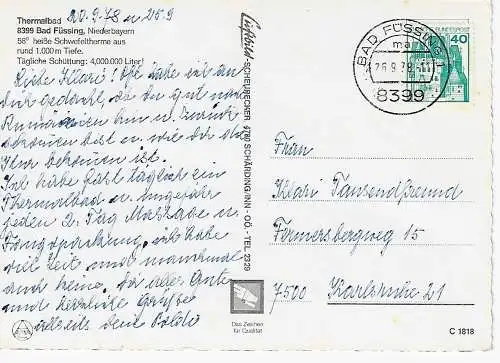 Thermalbad
8399 Bad Füssing, Niederbayern
56° heiße Schwefeltherme aus
rund 1.000 m Tiefe.
Tägliche Schüttung: 4,000.000 Liter!
20.9.78 u 25.9
Liebe Klari! Habe oft an
dich gedacht, ob du gut nach
Rumänien u. zurück
gekommen bist u. wie dir
bekommen ist.
Ich habe fast täglich ein
Thermalbad u. ungefähr
jeden 2. Tag Massage u.
Fangopackung, ich habe
viel Zeit und manchmal
auch keine. Dir alles Gute
und herzliche Grüße
allseits deine Poldi
Luftbild SCHEURECKER 4780 SCHÄRDING/INN - OÖ. - TEL 2329
Das Zeichen
für Qualität
BAD FÜSSING 1
ma
26.9.78
8399
40
Frau
Klari Tausendfreund
Fermersbergweg 15
7500 Karlsruhe 21
C 1818